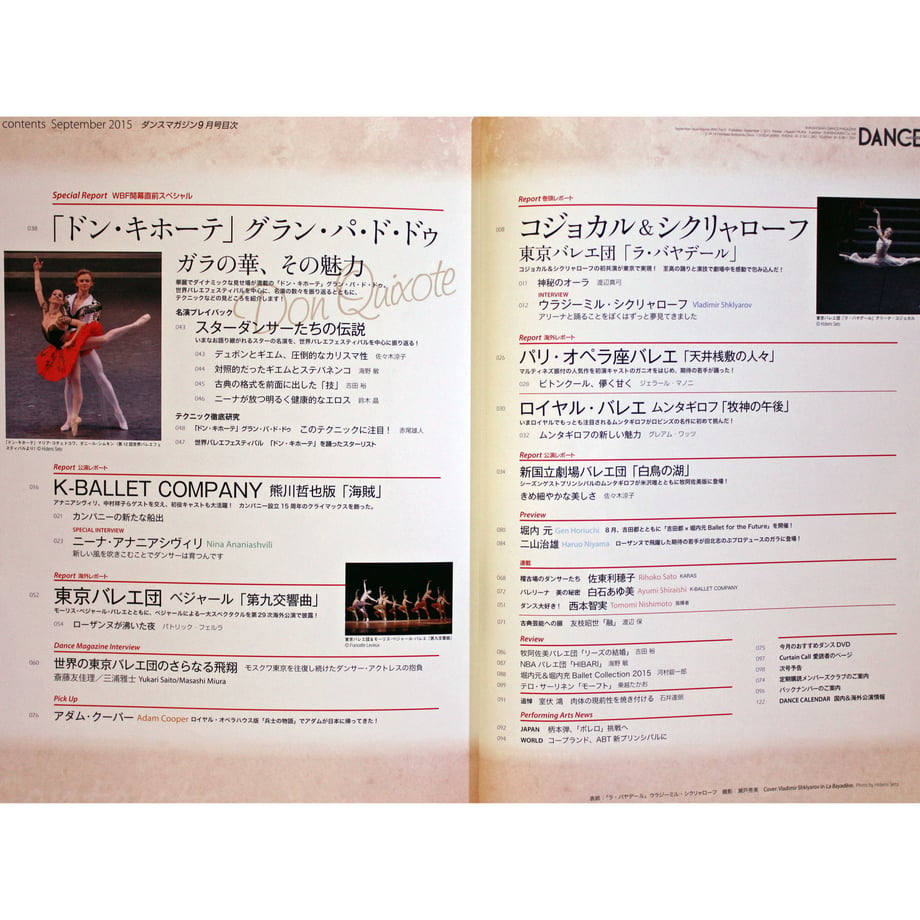 contents September 2015 ダンスマガジン9月号目次
Special Report WBF開幕直前スペシャル
038 「ドン・キホーテ」グラン・パ・ド・ドゥ
ガラの華、その魅力
Don Quixote
華麗でダイナミックな見せ場が満載の「ドン・キホーテ」グラン・パ・ド・ドゥ。
世界バレエフェスティバルを中心に、名演の数々を振り返るとともに、
テクニックなどの見どころを紹介します！
名演プレイバック
043 スターダンサーたちの伝説
いまなお語り継がれるスターの名演を、世界バレエフェスティバルを中心に振り返る！
043 デュポンとギエム、圧倒的なカリスマ性 佐々木涼子
044 対照的だったギエムとステパネンコ 海野 敏
045 古典の格式を前面に出した「技」 吉田 裕
046 ニーナが放つ明るく健康的なエロス 鈴木 晶
テクニック徹底研究
048 「ドン・キホーテ」グラン・パ・ド・ドゥ このテクニックに注目！ 赤尾雄人
047 世界バレエフェスティバル 「ドン・キホーテ」を踊ったスターリスト
「ドン・キホーテ」マリア・コチェトコワ、ダニール・シムキン（第12回世界バレエフェスティバルより）© Hidemi Seto
Report 公演レポート
016 K-BALLET COMPANY 熊川哲也版「海賊」
アナニアシヴィリ、中村祥子らゲストを交え、初役キャストも大活躍！ カンパニー設立15周年のクライマックスを飾った。
021 カンパニーの新たな船出
SPECIAL INTERVIEW
023 ニーナ・アナニアシヴィリ Nina Ananiashvili
新しい風を吹きこむことでダンサーは育つんです
Report 海外レポート
052 東京バレエ団 ベジャール「第九交響曲」
モーリス・ベジャール・バレエとともに、ベジャールによる一大スペクタクルを第29次海外公演で披露！
054 ローザンヌが沸いた夜 パトリック・フェルラ
東京バレエ団＆モーリス・ベジャール・バレエ「第九交響曲」
© Francette Levieux
Dance Magazine Interview
060 世界の東京バレエ団のさらなる飛翔 モスクワ東京を往復し続けたダンサー・アクトレスの抱負
斎藤友佳理／三浦雅士 Yukari Saito/Masashi Miura
Pick Up
076 アダム・クーパー Adam Cooper ロイヤル・オペラハウス版「兵士の物語」でアダムが日本に帰ってきた！
DANCE
Report 巻頭レポート
008 コジョカル＆シクリャローフ
東京バレエ団「ラ・バヤデール」
コジョカル＆シクリャローフの初共演が東京で実現！ 至高の踊りと演技で劇場中を感動で包み込んだ！
011 神秘のオーラ 渡辺真弓
INTERVIEW
012 ウラジーミル・シクリャローフ Vladimir Shklyarov
アリーナと踊ることをぼくはずっと夢見てきました
東京バレエ団「ラ・バヤデール」アリーナ・コジョカル
© Hidemi Seto
Report 海外レポート
026 パリ・オペラ座バレエ「天井桟敷の人々」
マルティネズ振付の人気作を初演キャストのガニオをはじめ、期待の若手が踊った！
028 ビトンクール、儚く甘く ジェラール・マノニ
030 ロイヤル・バレエ ムンタギロフ「牧神の午後」
いまロイヤルでもっとも注目されるムンタギロフがロビンズの名作に初めて挑んだ！
032 ムンタギロフの新しい魅力 グレアム・ワッツ
Report 公演レポート
034 新国立劇場バレエ団「白鳥の湖」
シーズンゲストプリンシパルのムンタギロフが米沢唯とともに牧阿佐美版に登場！
きめ細やかな美しさ 佐々木涼子
Preview
080 堀内 元 Gen Horiuchi 8月、吉田都とともに「吉田都×堀内元 Ballet for the Future」を開催！
084 二山治雄 Haruo Niyama ローザンヌで飛躍した期待の若手が田北志のぶプロデュースのガラに登場！
連載
068 稽古場のダンサーたち 佐東利穂子 Rihoko Sato KARAS
072 バレリーナ 美の秘密 白石あゆ美 Ayumi Shiraishi K-BALLET COMPANY
051 ダンス大好き！ 西本智実 Tomomi Nishimoto 指揮者
071 古典芸能への扉 友枝昭世「融」 渡辺 保
Review
086 牧阿佐美バレヱ団「リーズの結婚」 吉田 裕
087 NBAバレエ団「HIBARI」 海野 敏
088 堀内元＆堀内充 Ballet Collection 2015 河村錠一郎
089 テロ・サーリネン「モーフト」 乗越たかお
091 追悼 室伏 鴻 肉体の現前性を焼き付ける 石井達朗
Performing Arts News
092 JAPAN 柄本弾、「ボレロ」挑戦へ
094 WORLD コープランド、ABT新プリンシパルに
075 今月のおすすめダンスDVD
097 Curtain Call 愛読者のページ
098 次号予告
074 定期購読メンバーズクラブのご案内
096 バックナンバーのご案内
122 DANCE CALENDAR 国内＆海外公演情報
表紙：「ラ・バヤデール」ウラジーミル・シクリャローフ 撮影：瀬戸秀美 Cover: Vladimir Shklyarov in La Bayadère, Photo by Hidemi Seto